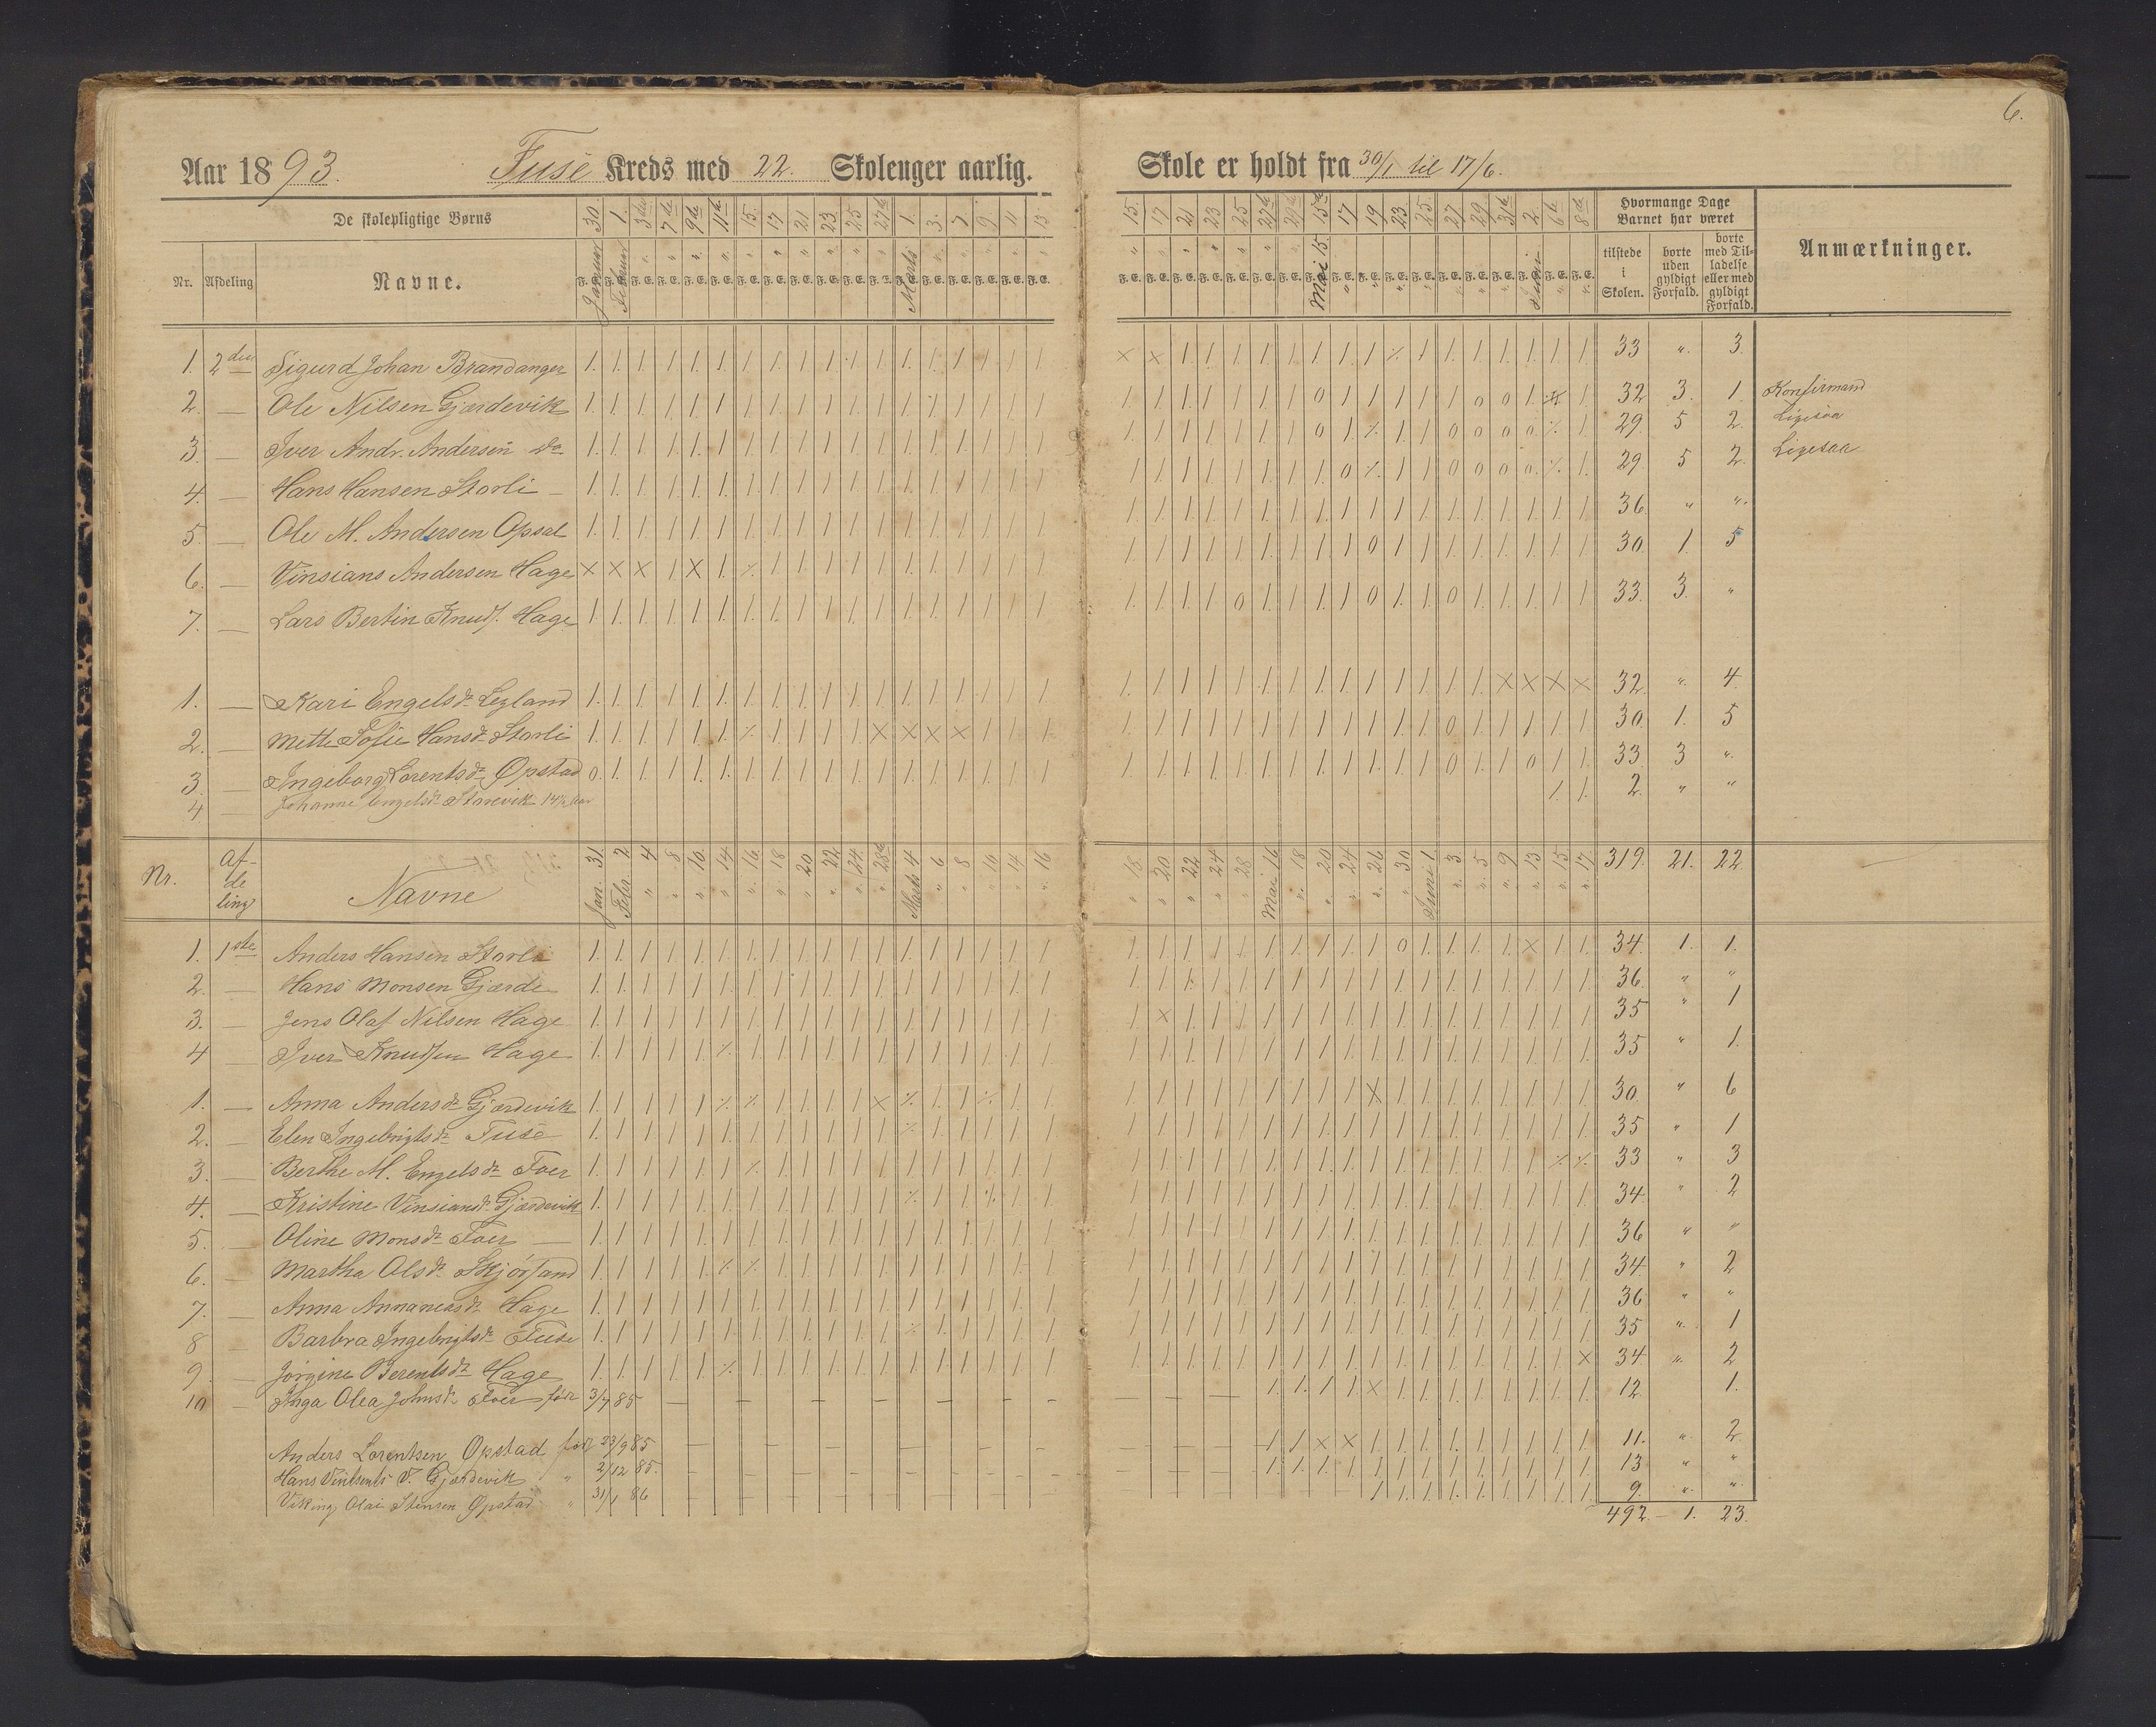 6.
Aar 1893. Fuse Kreds med 22. Skolenger aarlig. Skole er holdt fra 30/1 til 17/6.
De skolepligtige Børns
Nr. Afdeling Navne.
30. 1. 3die 7de 9de 11te 15. 17 21 23 25 27de 1. 3. 7 9 11 13
Januar Februar Marts
15. 17 21 23 25 27de 29de 15de 17 19 23 25. 27 29 31te 2. 6te 8de
Mai 15. Juni
F. E.
Hvormange Dage Barnet har været
tilstede i Skolen.
borte uden gyldigt Forfald.
borte med Tilladelse eller med gyldigt Forfald.
Anmærkninger.
1. 2den Sigurd Johan Brandanger 33 " 3.
2. — Ole Nilsen Gjærdevik 32 3. 1. Konfirmand
3. — Iver Andr. Andersen do 29. 5 2. Ligesaa
4. — Hans Hansen Storli — 29. 5 2. Ligesaa
5. — Ole M. Andersen Opsal 36. " "
6. — Vinsians Andersen Hage 30. 1. 5
7. — Lars Bertin Knuds. Hage 33. 3. "
1. — Kari Engelsdr Legland 32 " 4.
2. — Mette Sofie Hansdr Storli 30. 1. 5
3. — Ingeborg Lorentsdr Opstad 33 3 "
4 — Johanne Engelsdr Storevik 14½ Aar 2. " "
Nr. Afdeling Navne
Jan. 31. Febr. 2. 4 8 10. 14. 16. 18. 20 22 24. 28de Marts 4 6 8 10 14 16
18. 20 22 24 28. Mai 16. 18. 20 24 26. 30 Juni 1. 3. 5. 9. 13 15. 17.
319. 21. 22
1. 1ste Anders Hansen Storli 34. 1. 1.
2. — Hans Monsen Gjærde 36. " "
3. — Jens Olaf Nilsen Hage 35 " 1
4 — Iver Knudsen Hage 35 " 1.
1. — Anna Andersdr Gjærdevik 30. " 6
2. — Elen Ingebrigtsdr Fuse 35 " 1
3. — Berthe M. Engelsdr Foer 33 " 3
4. — Kristine Vinsiansdr Gjærdevik 34. " 2
5. — Oline Monsdr Foer — 36 " "
6. — Martha Olsdr Skjørsand 34. " 2
7. — Anna Annaniasdr Hage 36 " "
8 — Barbra Ingebrigtsdr Fuse 35 " 1
9. — Jørgine Berentsdr Hage 34 " 2
10 — Inga Olea Johnsdr Foer født 3/7 85 12. 1.
Anders Lorentsen Opstad født 23/9 85 11. " 2.
Hans V. Gjærdevik " 2/12 85. 13 " "
Viking Olai Stensen Opstad " 31/1 86 9. " "
492 — 1. 23.